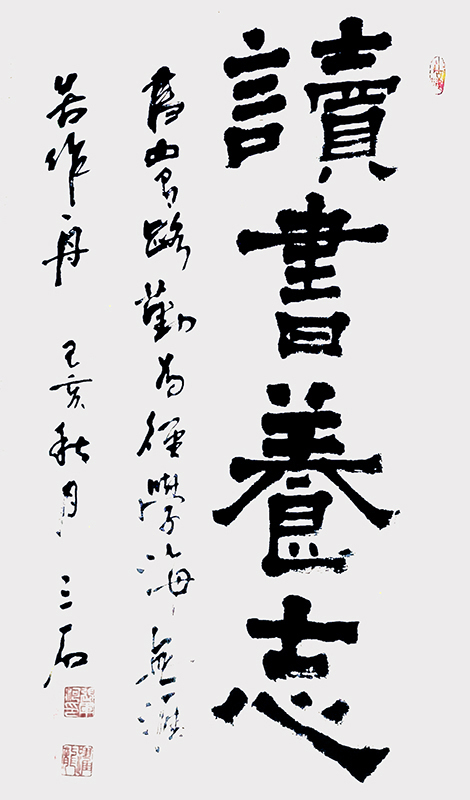 讀書養志
書山有路勤為徑學海無涯
苦作舟 己亥秋月 三石